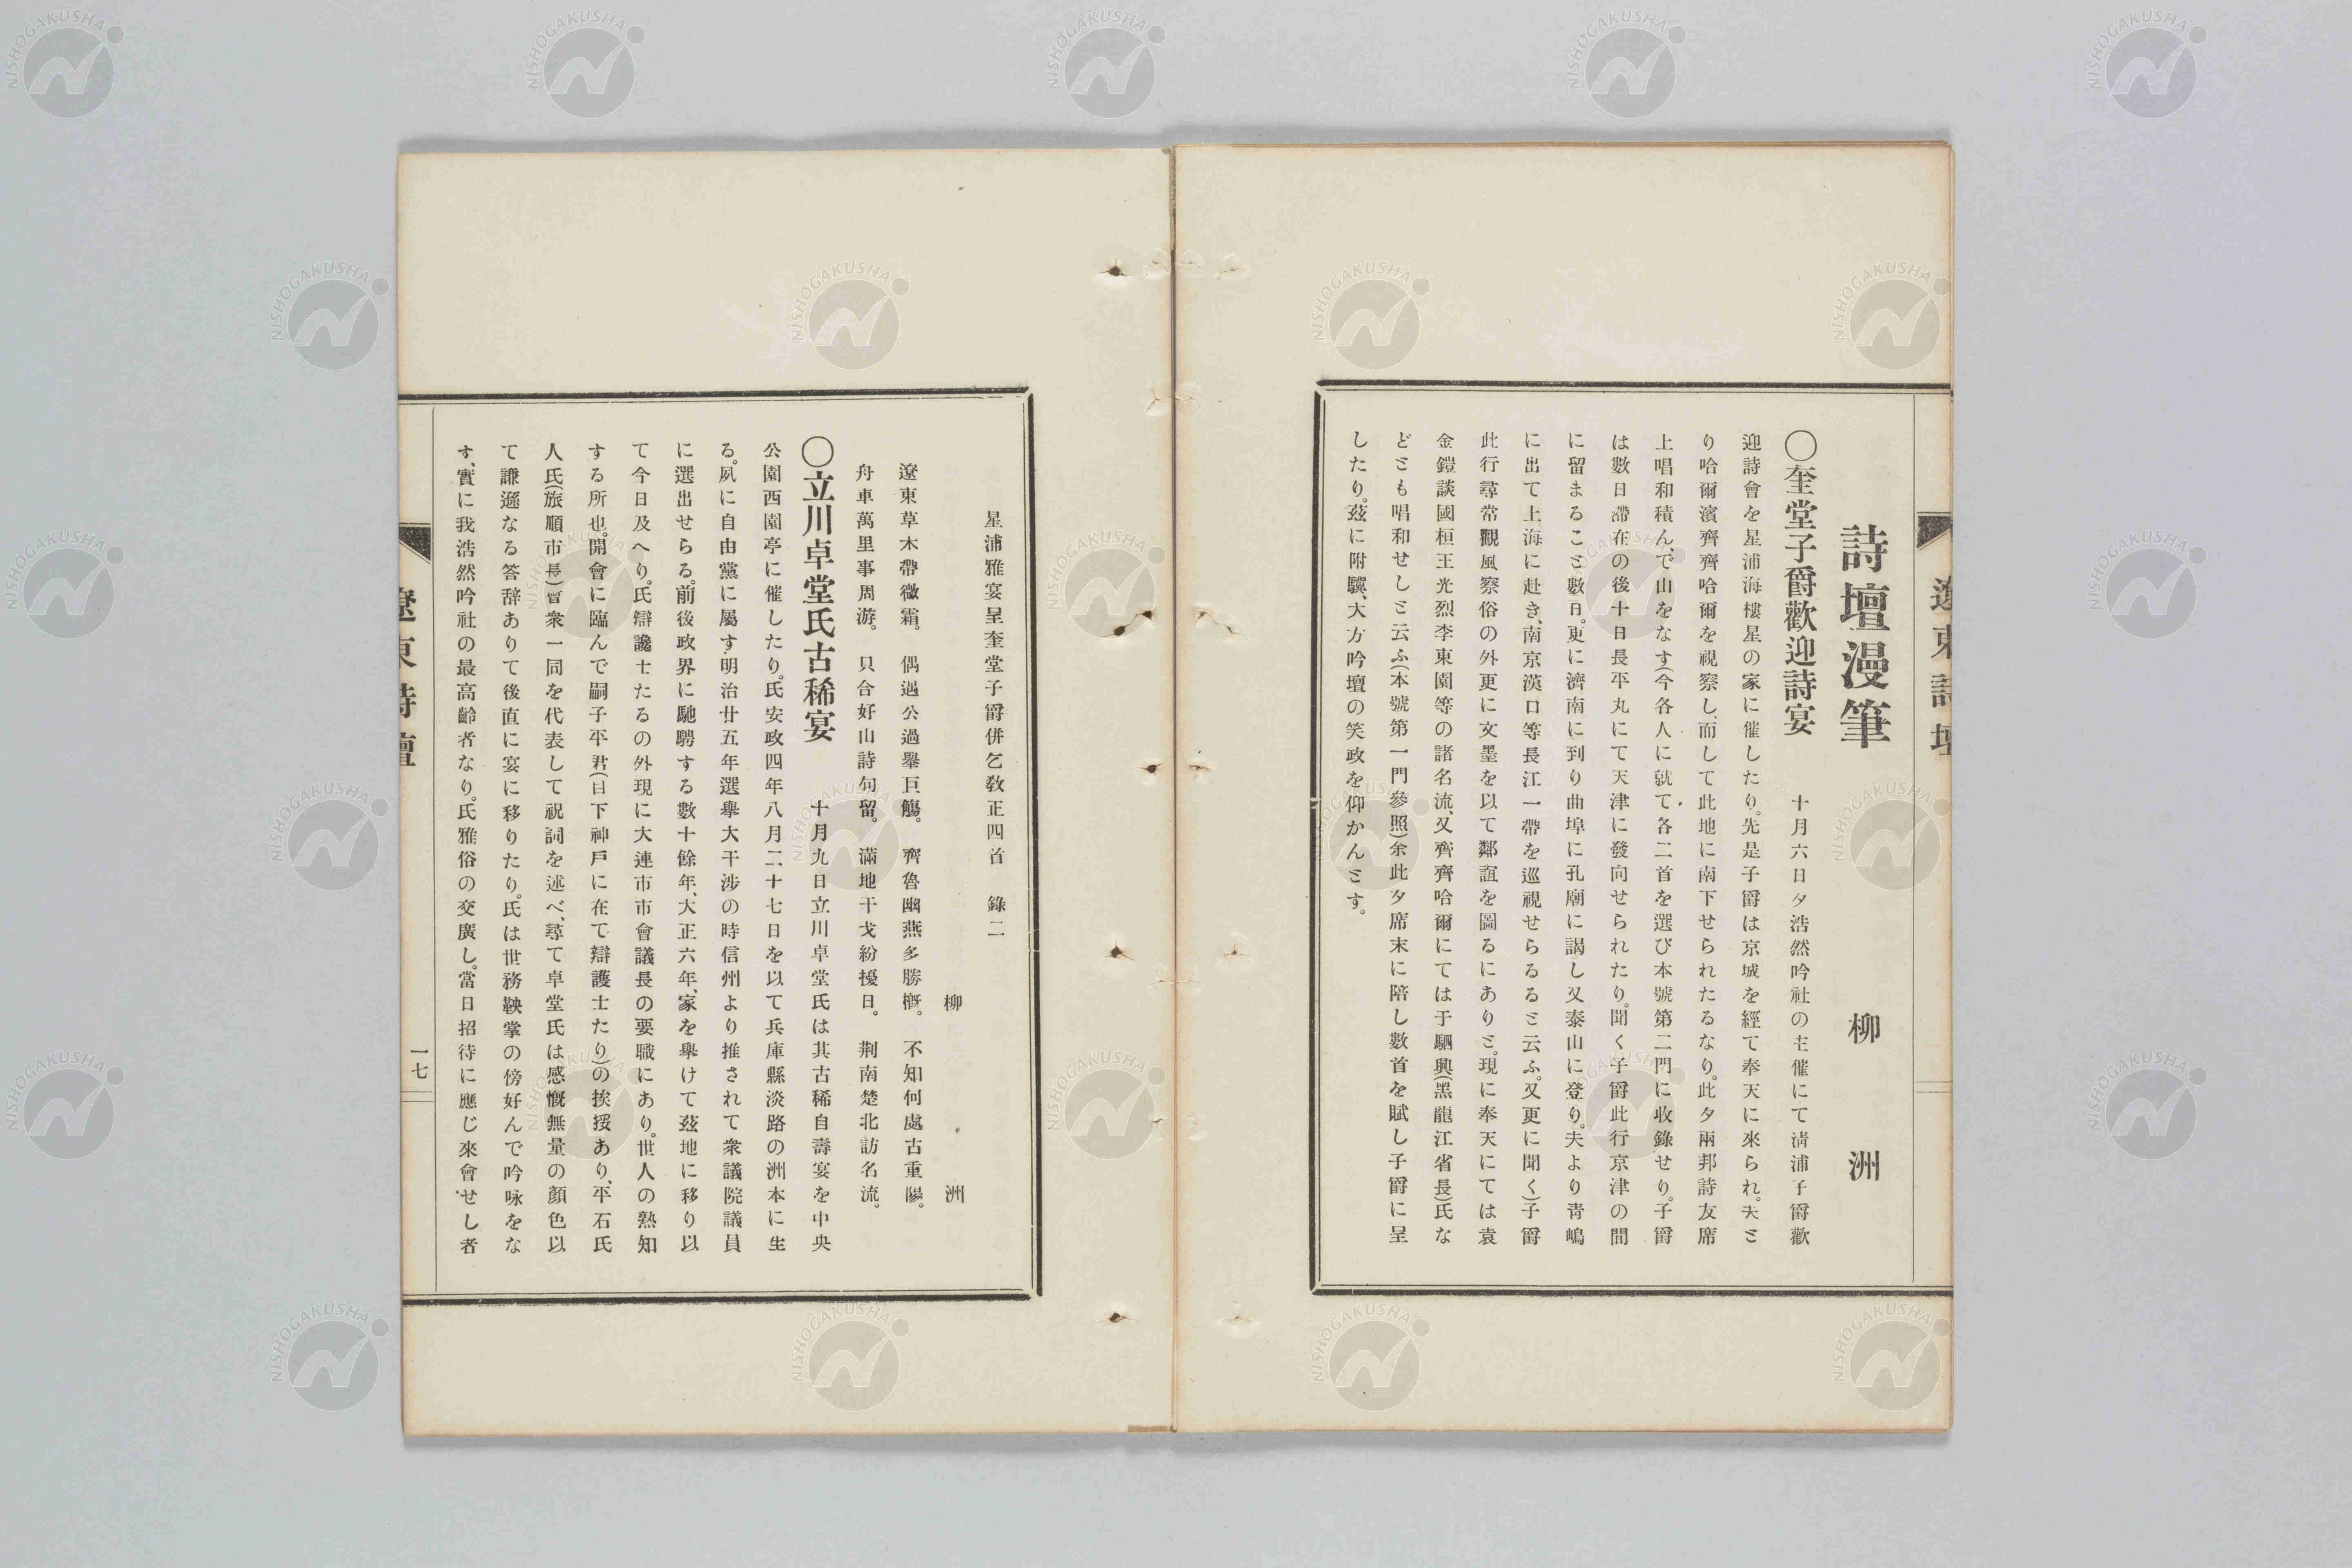 詩壇漫筆
柳洲
〇奎堂子爵歡迎詩宴 十月六日夕浩然吟社の主催にて清浦子爵歡
迎詩會を星浦海樓星の家に催したり。先是子爵は京城を經て奉天に來られ。夫ㇳ
り哈爾濱齊齊哈爾を視察し、而して此地に南下せられたるなり。此夕兩邦詩友席
上唱和積んで山をなす(今各人に就て各二首を選び本號第二門に收錄せり。子爵
は數日滯在の後十日長平丸にて天津に發向せられたり。聞く子爵此行京津の間
に留まるこㇳ數日。更に濟南に到り曲埠に孔廟に謁し又泰山に登り。夫より靑嶋
に出て上海に赴き、南京漢口等長江一帶を巡視せらるるㇳ云ふ。又更に聞く)子爵
此行尋常觀風察俗の外更に文墨を以て鄰誼を圖るにありㇳ。現に奉天にては袁
金鎧談國桓王光烈李東園等の諸名流、又齊齊哈爾にては于駟興(黑龍江省長)氏な
どㇳも唱和せしㇳ云ふ(本號第一門參照)余此夕席末に陪し數首を賦し子爵に呈
したり。茲に附驥、大方吟壇の笑政を仰かんㇳす。
遼東詩壇
星浦雅宴呈奎堂子爵併乞敎正四首 錄二
柳洲
遼東草木帶微霜。 偶遇公過擧巨觴。 齊魯幽燕多勝槪。 不知何處古重陽。
舟車萬里事周游。 只合好山詩句留。 滿地干戈紛擾日。 荆南楚北訪名流。
〇立川卓堂氏古稀宴 十月九日立川卓堂氏は其古稀自壽宴を中央
公園西園亭に催したり。氏安政四年八月二十七日を以て兵庫縣淡路の洲本に生
る。夙に自由黨に屬す。明治廿五年選擧大干涉の時信州より推されて衆議院議員
に選出せらる。前後政界に馳騁する數十餘年、大正六年、家を擧けて茲地に移り以
て今日及へり。氏辯護士たるの外現に大連市市會議長の要職にあり。世人の熟知
する所也。開會に臨んで嗣子平君(日下神戶に在て辯護士たり)の挨拶あり、平石氏
人氏(旅順市長)曾衆一同を代表して祝詞を述べ、尋て卓堂氏は感慨無量の顏色以
て謙遜なる答辞ありて後直に宴に移りたり。氏は世務鞅掌の傍好んで吟咏をな
す、實に我浩然吟社の最高齡者なり。氏雅俗の交廣し。當日招待に應じ來會せし者
遼東詩壇
一七